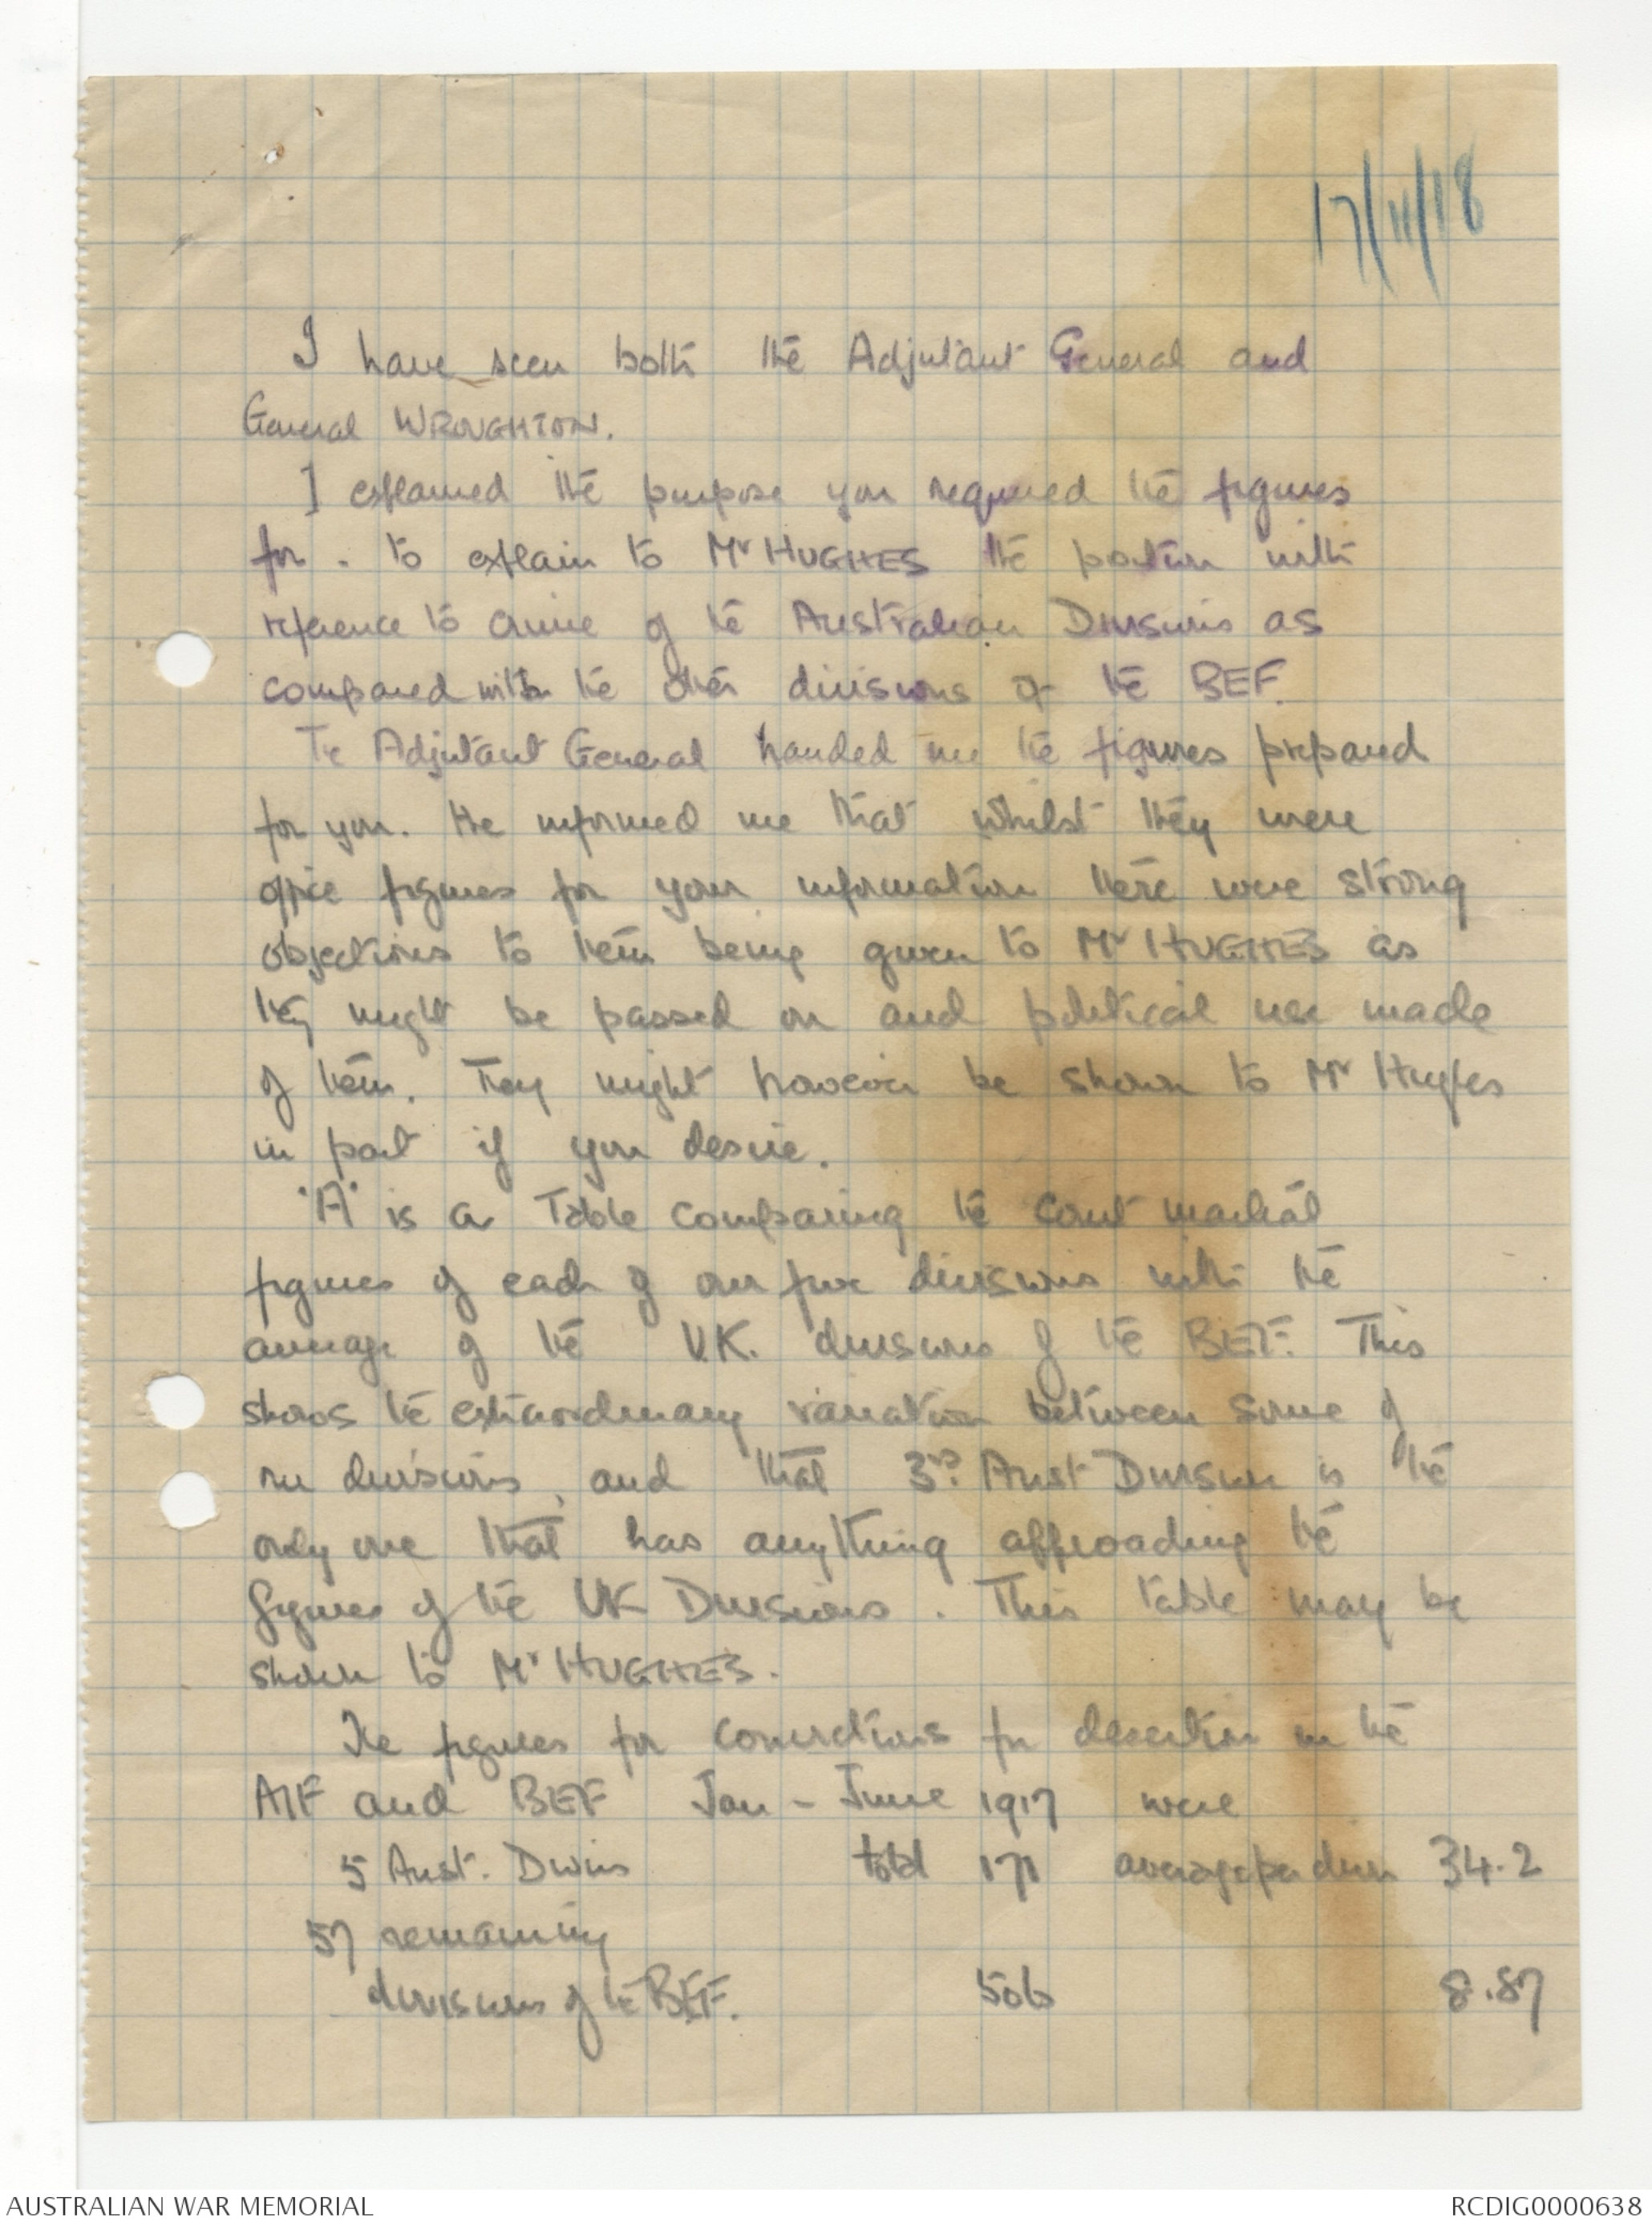 17/11/18
I have seen both the Adjutant General and
General WROUGHTON.
I explained the purpose you required the figures
for . to explain to Mr HUGHES the position with
reference to crime of the Australian Divisions as
compared with the other divisions of the BEF.
The Adjutant General handed me the figures prepared
for you. He informed me that whilst they were
office figures for your information there were strong
objections to them being given to Mr HUGHES as
they might be passed on and political use made
of them. They might however be shown to Mr Hughes
in part if you desire.
'A' is a Table comparing the court martial
figures of each of our five divisions with the
average of the U.K. divisions of the BEF. This
shows the extraordinary variation between some of
our divisions, and that 3rd. Aust Division is the
only one that has anything approaching the
figures of the UK Divisions. This table may be
shown to Mr HUGHES.
The figures for convictions for desertion in the
AIF and BEF Jan - June 1917 were
5 Aust. Divns total 171 average per divn 34.2
57 remaining
divisions of the BEF. 506 8.87
AUSTRALIAN WAR MEMORIAL
RCDIG0000638